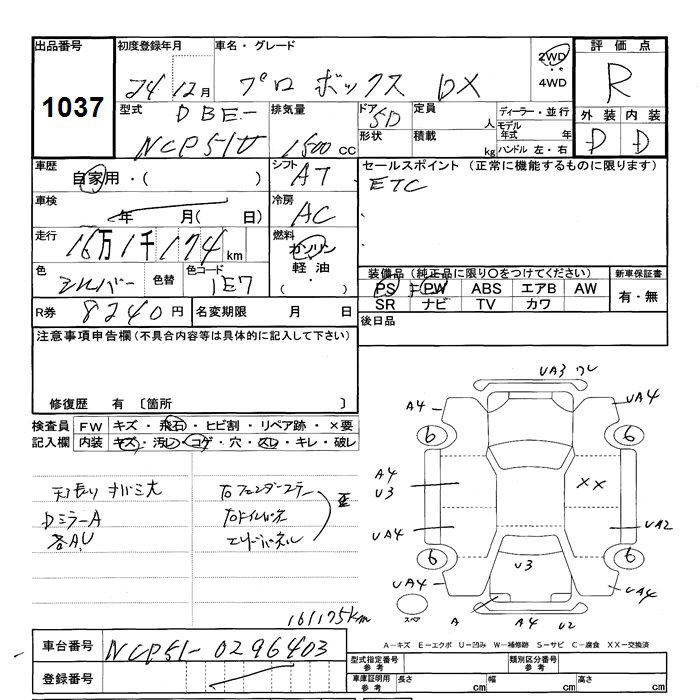 出品番号 初度登録年月 車名・グレード 評価点
1037 24 12月 プロボックス DX 2WD 4WD R
型式 DBE- NCP51V 排気量 1500cc ドア 5D 形状 定員 人 積載 kg ディーラー・並行 モデル年式 年 ハンドル 左・右 外装 内装 D D
車歴 自家用・( ) シフト AT セールスポイント (正常に機能するものに限ります)
ETC
車検 年 月( 日) 冷房 AC
走行 16万1千174km 燃料 ガソリン 軽油 ( ・ )
色 シルバー 色替 色コード 1E7
装備品(純正品に限り○をつけてください) 新車保証書
PS PW ABS エアB AW 有・無
SR ナビ TV カワ
R券 8240円 名変期限 月 日 後日品
注意事項申告欄(不具合内容等は具体的に記入して下さい)
修復歴 有 〔箇所 〕
検査員記入欄 FW キズ・飛石・ヒビ割・リペア跡・×要
内装 キズ・汚レ・コゲ・穴・スレ・キレ・破レ
Dミラー A
各A,U
161175km
UA3 ワレ
A4 UA4
6 6
A4 U3 XX
UA4 UA2
6 6
U3
UA4 UA4
スペア A A4 U2
A−キズ E−エクボ U−凹み W−補修跡 S−サビ C−腐食 XX−交換済
車台番号 NCP51-0296403
登録番号
型式指定番号 参考 類別区分番号 参考
車庫証明用 参考 長さ cm 幅 cm 高さ cm